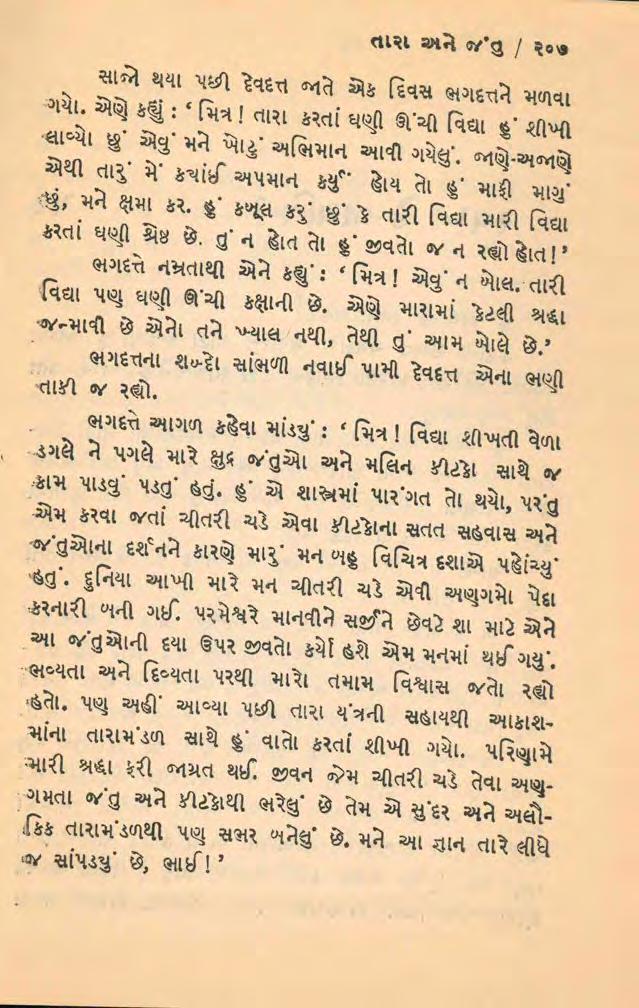 તારા અને જંતુ / ૨૦૭
સાજો થયા પછી દેવદત્ત જાતે એક દિવસ ભગદત્તને મળવા
ગયો. એણે કહ્યું : ‘ મિત્ર ! તારા કરતાં ઘણી ઊંચી વિદ્યા હું શીખી
લાવ્યો છું એવું મને ખોટું અભિમાન આવી ગયેલું. જાણે-અજાણે
એથી તારું મેં કયાંઈ અપમાન કર્યું હોય તો હું માફી માગું
છું, મને ક્ષમા કર. હું કબૂલ કરું છું કે તારી વિદ્યા મારી વિદ્યા
કરતાં ઘણી શ્રેષ્ઠ છે. તું ન હોત તો હું જીવતો જ ન રહ્યો હોત ! ’
ભગદત્તે નમ્રતાથી એને કહ્યું : ‘ મિત્ર ! એવું ન બોલ. તારી
વિદ્યા પણ ઘણી ઊંચી કક્ષાની છે. એણે મારામાં કેટલી શ્રદ્ધા
જન્માવી છે એનો તને ખ્યાલ નથી, તેથી તું આમ બોલે છે.’
ભગદત્તના શબ્દો સાંભળી નવાઈ પામી દેવદત્ત એના ભણી
તાકી જ રહ્યો.
ભગદત્તે આગળ કહેવા માંડયું : ‘ મિત્ર ! વિદ્યા શીખતી વેળા
ડગલે ને પગલે મારે ક્ષુદ્ર જંતુઓ અને મલિન કીટકો સાથે જ
કામ પાડવું પડતું હતું. હું એ શાસ્ત્રમાં પારંગત તો થયો, પરંતુ
એમ કરવા જતાં ચીતરી ચડે એવા કીટકોના સતત સહવાસ અને
જંતુઓના દર્શનને કારણે મારું મન બહુ વિચિત્ર દશાએ પહોંચ્યું
હતું. દુનિયા આખી મારે મન ચીતરી ચડે એવી અણગમો પેદા
કરનારી બની ગઈ. પરમેશ્વરે માનવીને સર્જીને છેવટે શા માટે એને
આ જંતુઓની દયા ઉપર જીવતો કર્યો હશે એમ મનમાં થઈ ગયું.
ભવ્યતા અને દિવ્યતા પરથી મારો તમામ વિશ્વાસ જતો રહ્યો
હતો. પણ અહીં આવ્યા પછી તારા યંત્રની સહાયથી આકાશ-
માંના તારામંડળ સાથે હું વાતો કરતાં શીખી ગયો. પરિણામે
મારી શ્રદ્ધા ફરી જાગ્રત થઈ. જીવન જેમ ચીતરી ચડે તેવા અણ-
ગમતા જંતુ અને કીટકોથી ભરેલું છે તેમ એ સુંદર અને અલૌ-
કિક તારામંડળથી પણ સભર બનેલું છે. મને આ જ્ઞાન તારે લીધે
જ સાંપડયું છે, ભાઈ ! ’